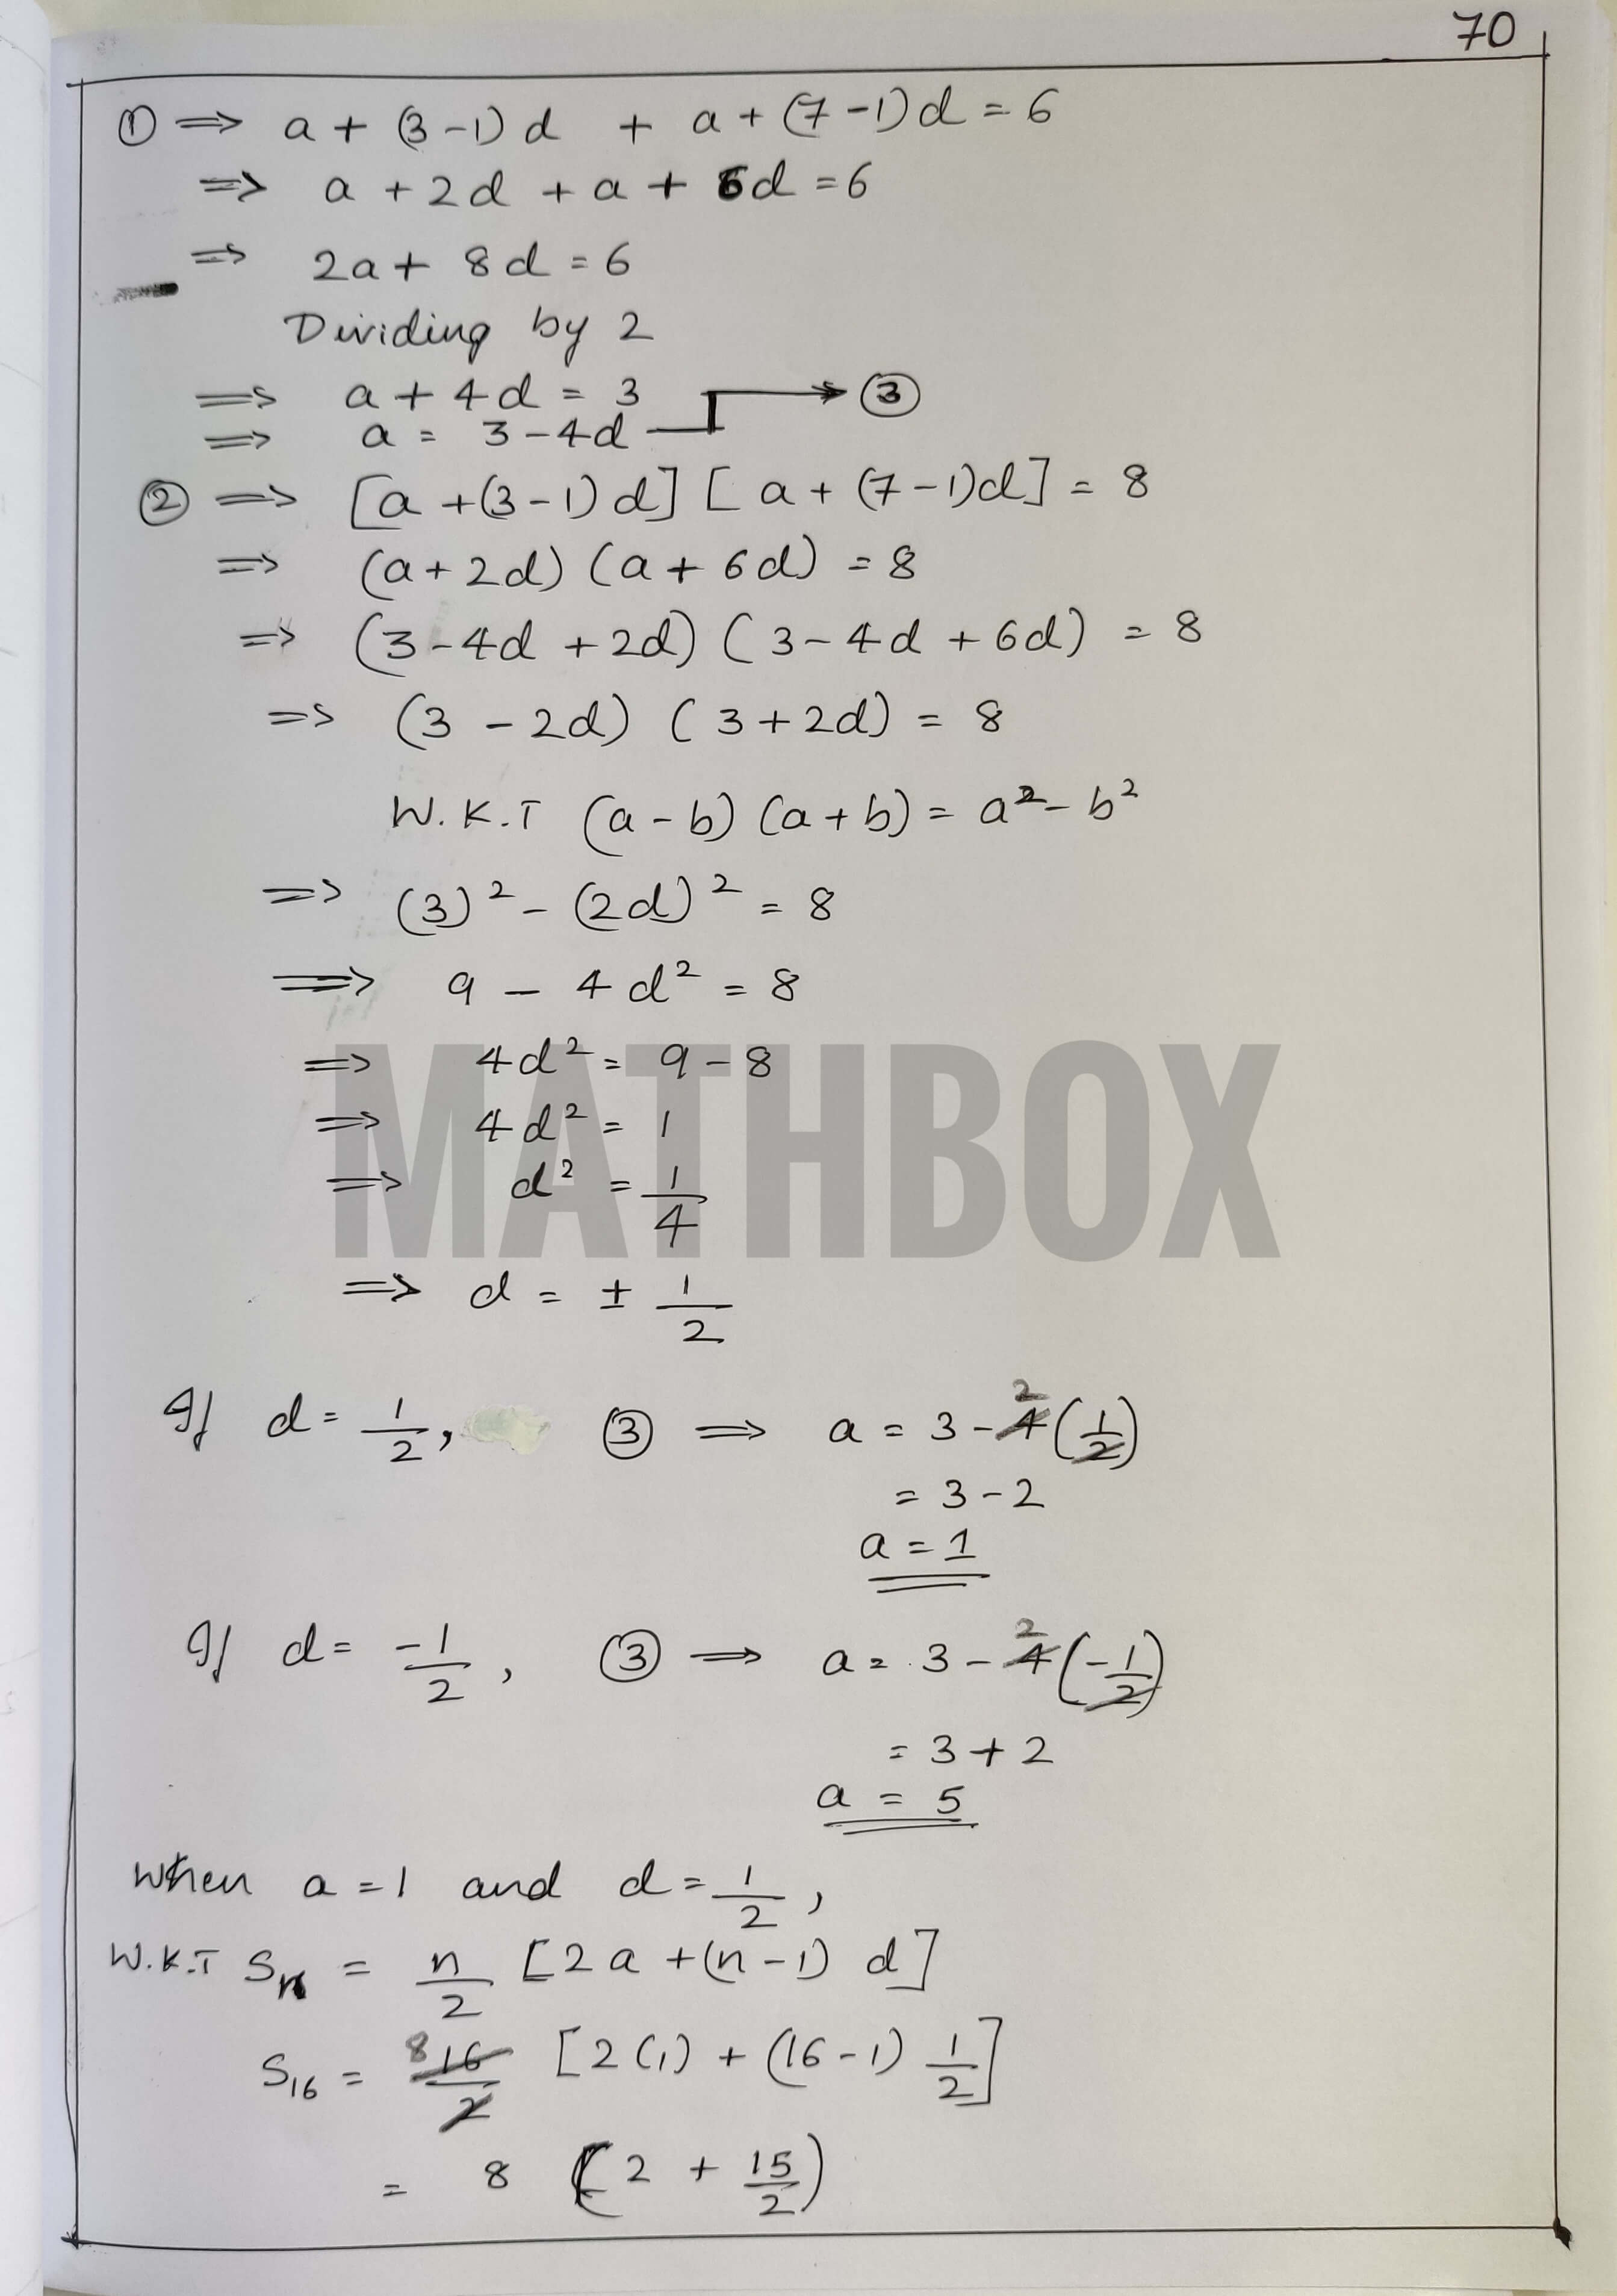 70
① ⇒ a + (3-1)d + a + (7-1)d = 6
⇒ a + 2d + a + 6d = 6
⇒ 2a + 8d = 6
Dividing by 2
⇒ a + 4d = 3
⇒ a = 3-4d → ③
② ⇒ [a + (3-1)d] [a + (7-1)d] = 8
⇒ (a+2d) (a+6d) = 8
⇒ (3-4d+2d) (3-4d+6d) = 8
⇒ (3-2d) (3+2d) = 8
W.K.T (a-b) (a+b) = a²-b²
⇒ (3)² - (2d)² = 8
⇒ 9 - 4d² = 8
⇒ 4d² = 9-8
⇒ 4d² = 1
⇒ d² = 1/4
⇒ d = ± 1/2
MATHBOX
If d = 1/2, ③ ⇒ a = 3-4²(1/2)
= 3-2
a = 1
If d = -1/2, ③ ⇒ a = 3-4²(-1/2)
= 3+2
a = 5
When a = 1 and d = 1/2,
W.K.T Sn = n/2 [2a + (n-1) d]
S₁₆ = 8 16/2 [2(1) + (16-1) 1/2]
= 8 (2 + 15/2)